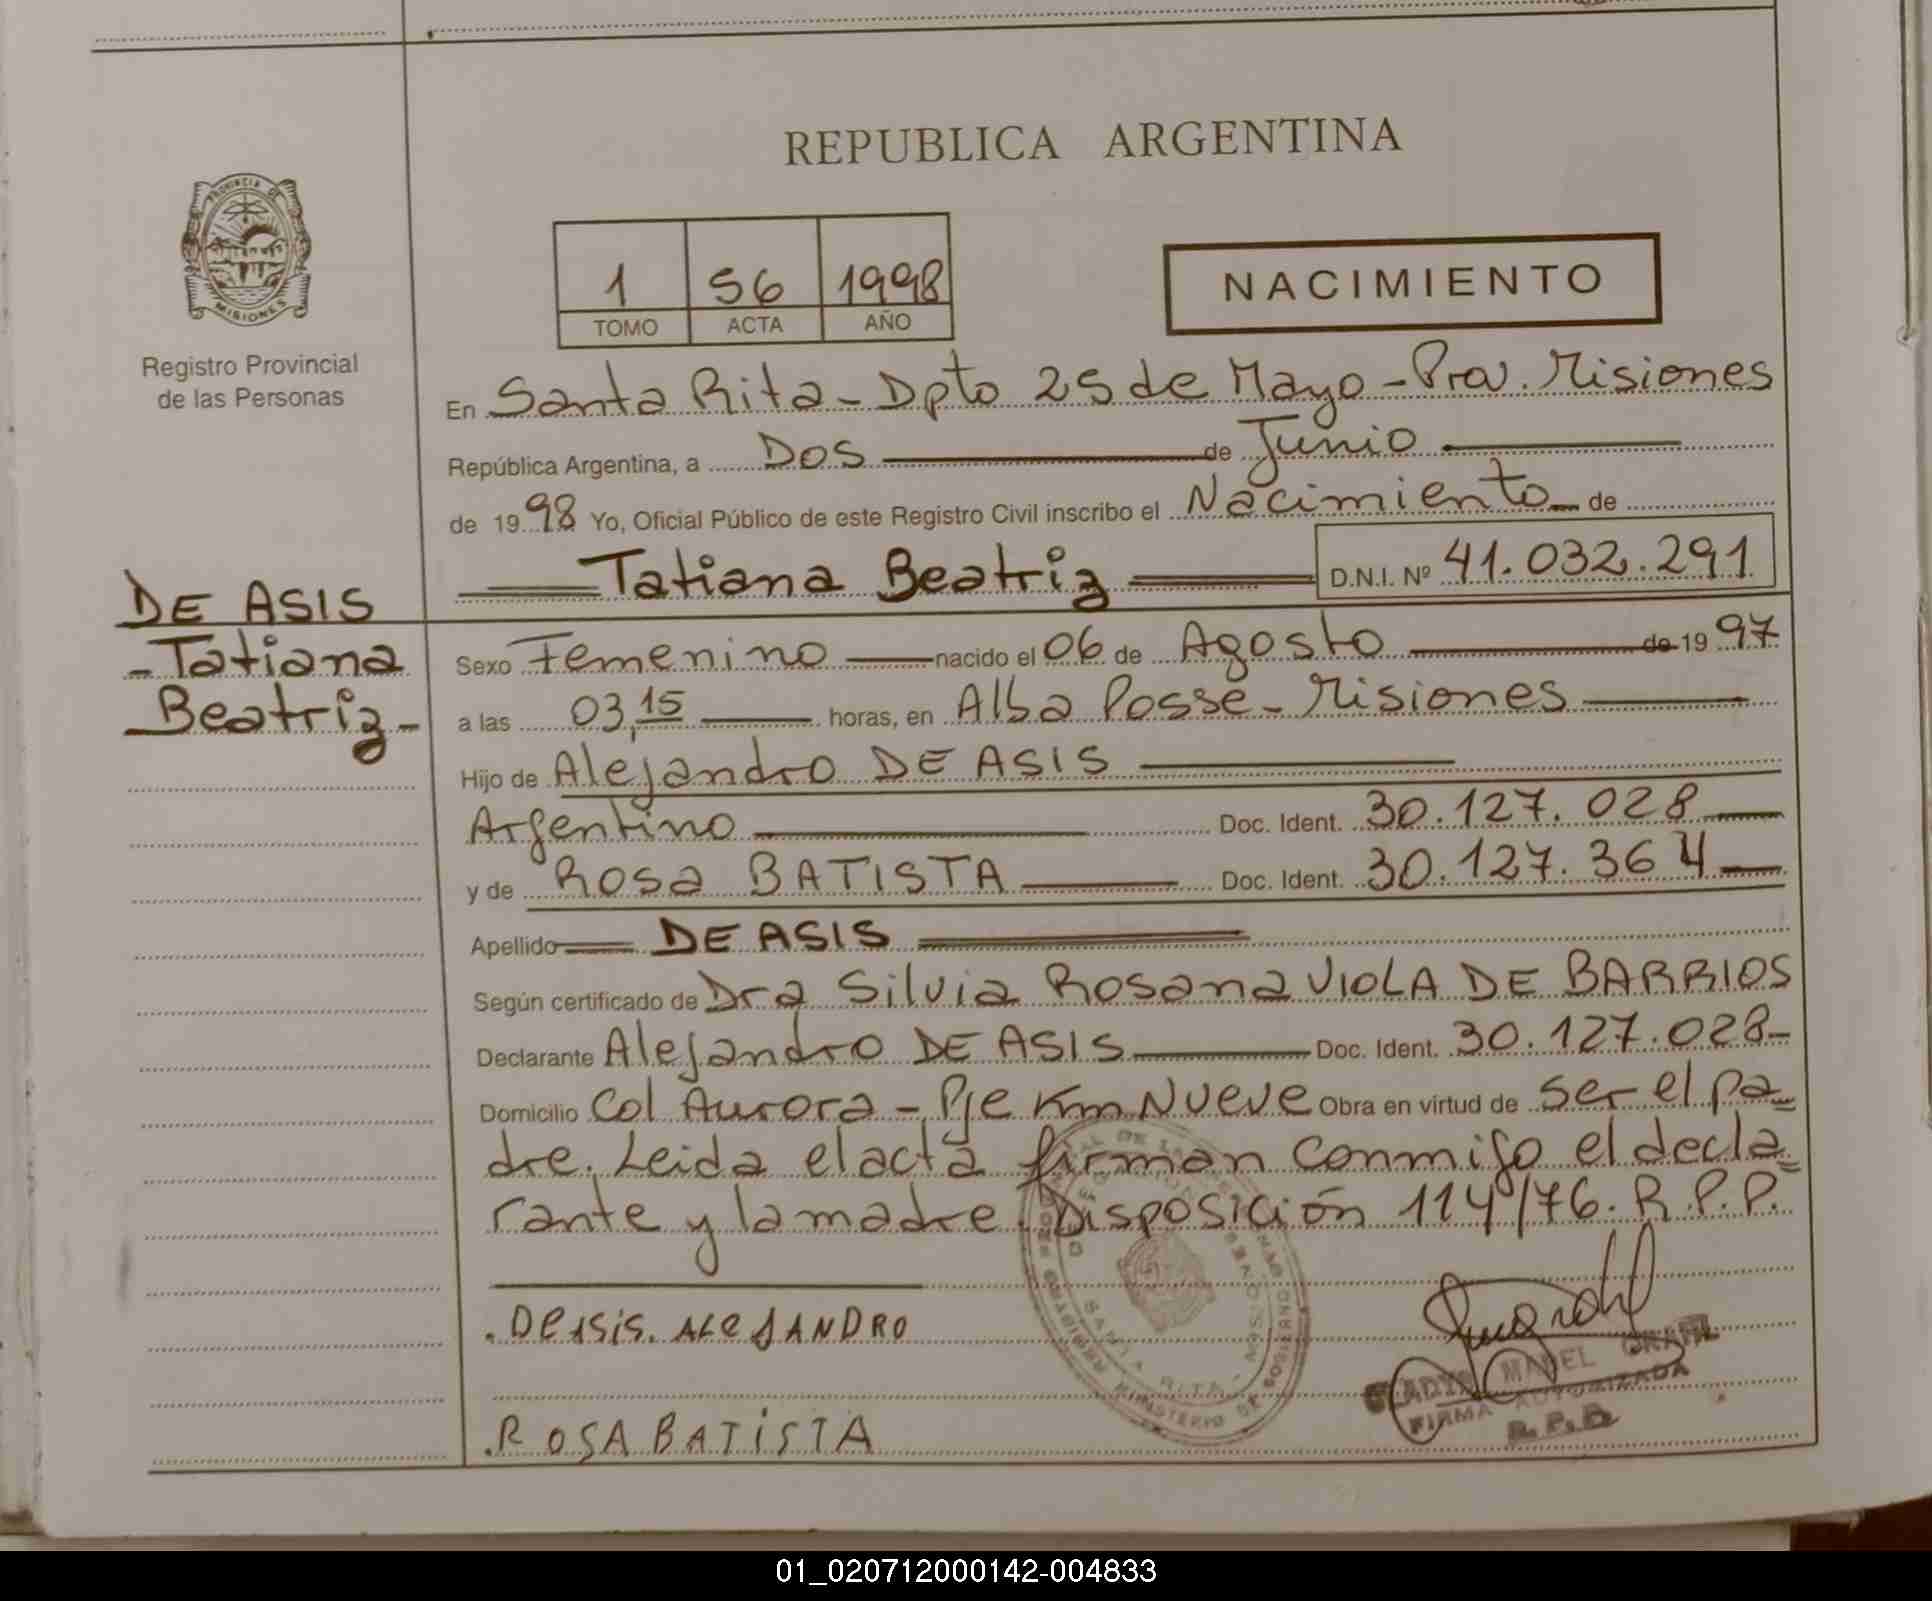 REPUBLICA ARGENTINA
PROVINCIA DE
MISIONES
Registro Provincial
de las Personas
1 56 1998
TOMO ACTA AÑO
NACIMIENTO
En Santa Rita - Dpto 25 de Mayo - Prov. Misiones
República Argentina, a Dos de Junio
de 1998 Yo, Oficial Público de este Registro Civil inscribo el Nacimiento de
Tatiana Beatriz D.N.I. Nº 41.032.291
DE ASIS
-Tatiana
Beatriz-
Sexo Femenino nacido el 06 de Agosto de 1997
a las 03,15 horas, en Alba Posse - Misiones
Hijo de Alejandro DE ASIS
Argentino Doc. Ident. 30.127.028
y de Rosa BATISTA Doc. Ident. 30.127.364
Apellido DE ASIS
Según certificado de Dra Silvia Rosana VIOLA DE BARRIOS
Declarante Alejandro DE ASIS Doc. Ident. 30.127.028-
Domicilio Col Aurora - Pje Km Nueve Obra en virtud de ser el pa-
dre. Leida el acta firman conmigo el decla=
rante y la madre. Disposición 114/76. R.P.P.
.DEASIS. ALEJANDRO
.ROSA BATISTA
SANTA RITA - MISIONES
MINISTERIO DE GOBIERNO
MABEL
FIRMA AUTORIZADA
R.P.P.
01_020712000142-004833